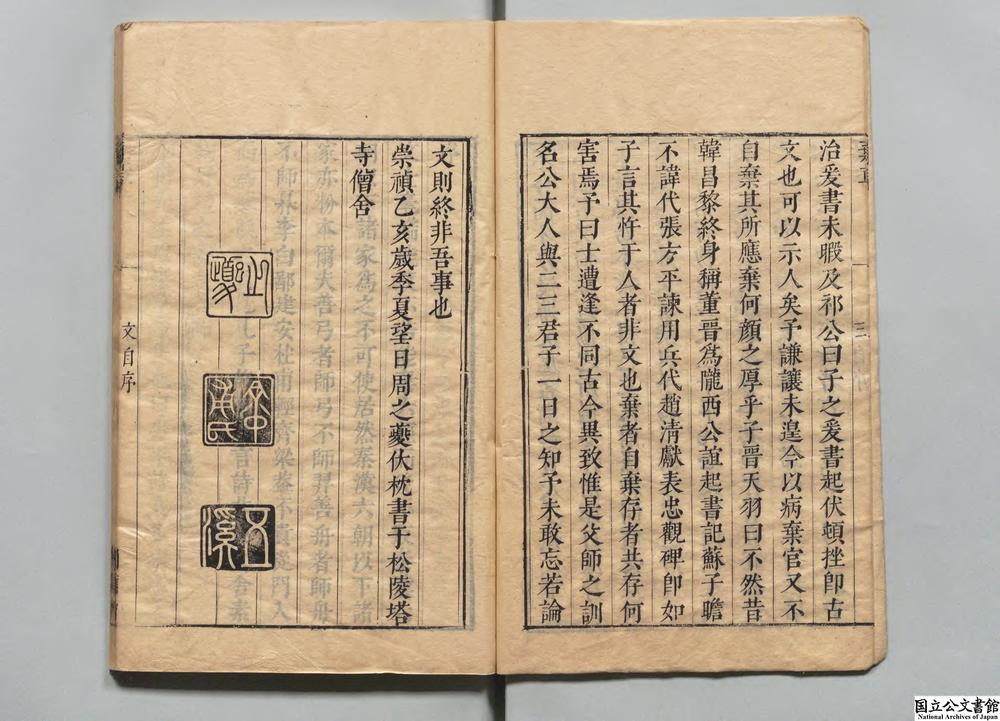 治爰書未暇及祁公曰子之爰書起伏頓挫卽古
文也可以示人矣予謙讓未遑今以病棄官又不
自棄其所應棄何顏之厚乎子晉天羽曰不然昔
韓昌黎終身稱董晉爲隴西公誼起書記蘇子瞻
不諱代張方平諫用兵代趙清獻表忠觀碑卽如
子言其忤于人者非文也棄者自棄存者共存何
害焉予曰士遭逢不同古今異致惟是父師之訓
名公大人與二三君子一日之知予未敢忘若論
三
文則終非吾事也
崇禎乙亥歲季夏望日周之夔伏枕書于松陵塔
寺僧舍
之夔
章甫氏
五溪
文自序
国立公文書館
National Archives of Japan